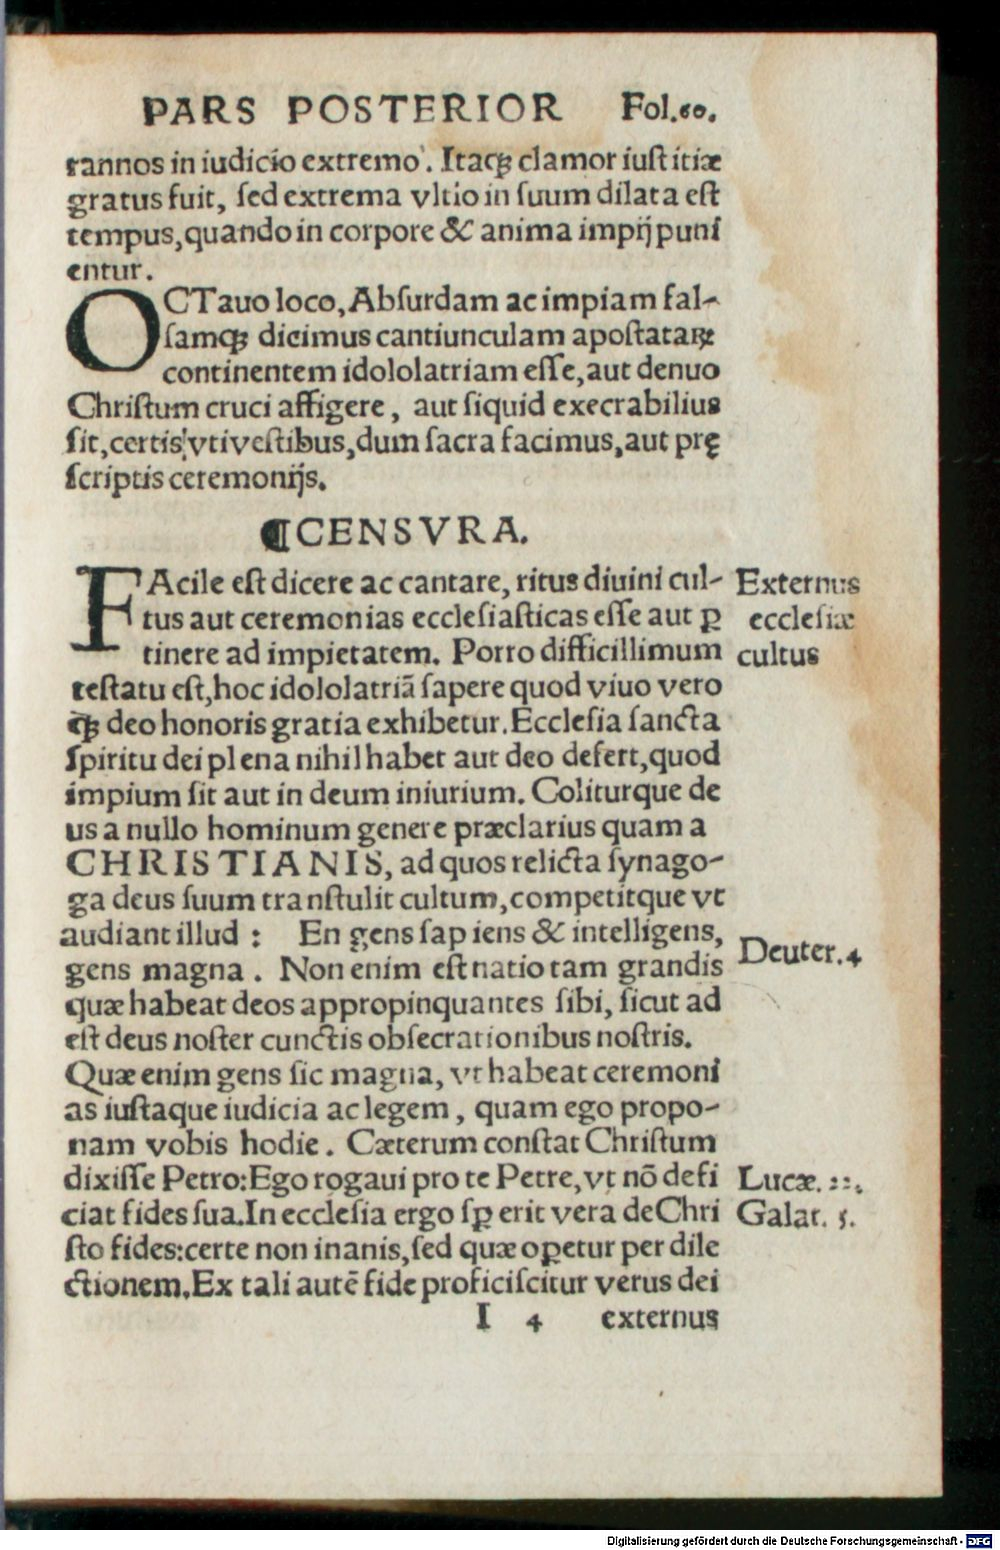 PARS POSTERIOR Fol.60.
rannos in iudicio extremo. Itaqꝫ clamor iustitiæ
gratus fuit, ſed extrema vltio in ſuum dilata eſt
tempus,quando in corpore & anima impij puni
entur.
OCTauo loco, Abſurdam ac impiam fal-
ſamqꝫ dicimus cantiunculam apoſtataꝝ
continentem idololatriam eſſe,aut denuo
Chriſtum cruci affigere, aut ſiquid execrabilius
ſit,certis vti veſtibus,dum ſacra facimus,aut prę
ſcriptis ceremonijs.
¶CENSVRA.
FAcile eſt dicere ac cantare, ritus diuini cul-
tus aut ceremonias eccleſiaſticas eſſe aut ꝑ
tinere ad impietatem. Porro difficillimum
teſtatu eſt,hoc idololatriã ſapere quod viuo vero
qꝫ deo honoris gratia exhibetur.Eccleſia ſancta
ſpiritu dei plena nihil habet aut deo defert,quod
impium ſit aut in deum iniurium. Coliturque de
us a nullo hominum genere præclarius quam a
CHRISTIANIS, ad quos relicta ſynago-
ga deus ſuum tranſtulit cultum,competitque vt
audiant illud : En gens ſapiens & intelligens,
gens magna. Non enim eſt natio tam grandis
quæ habeat deos appropinquantes ſibi, ſicut ad
eſt deus noſter cunctis obſecrationibus noſtris.
Quæ enim gens ſic magna, vt habeat ceremoni
as iuſtaque iudicia ac legem, quam ego propo-
nam vobis hodie. Cæterum conſtat Chriſtum
dixiſſe Petro:Ego rogaui pro te Petre,vt nõ defi
ciat fides tua.In eccleſia ergo ſꝑ erit vera de Chri
ſto fides:certe non inanis,ſed quæ oꝑetur per dile
ctionem.Ex tali autẽ fide proficiſcitur verus dei
I 4 externus
Externus
eccleſiæ
cultus
Deuter.4
Lucæ. 22.
Galat. 5.
Digitalisierung gefördert durch die Deutsche Forschungsgemeinschaft - DFG